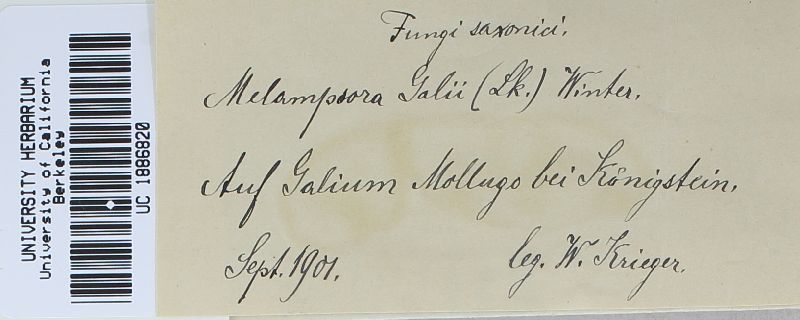 UNIVERSITY HERBARIUM
University of California
Berkeley
UC 1886820
Fungi saxonici.
Melampsora Galii (Lk.) Winter.
Auf Galium Mollugo bei Königstein.
Sept. 1901.
leg. W. Krieger.